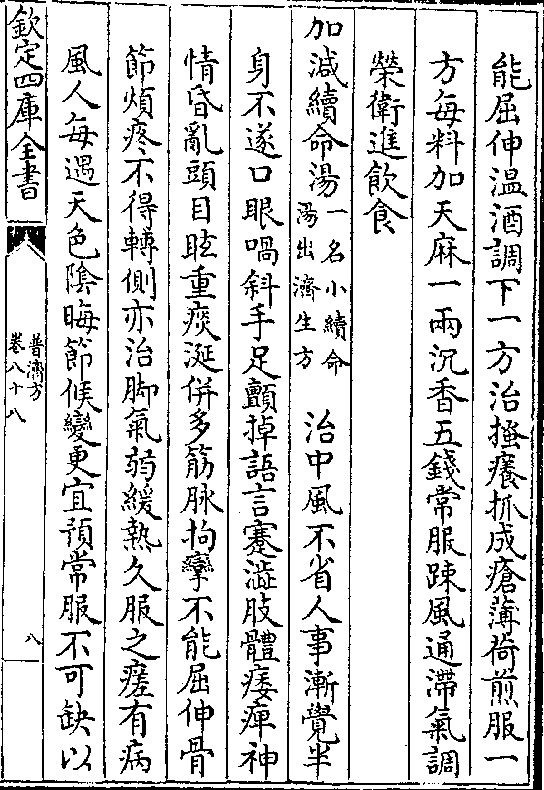 能屈伸温酒調下一方治搔癢抓成瘡薄荷煎服一
方每料加天麻一兩沉香五錢常服踈風通滯氣調
榮衛進飲食
加減續命湯一名小續命湯出濟生方 治中風不省人事漸覺半
身不遂口眼喎斜手足顫掉語言蹇澁肢體痿痺神
情昏亂頭目眩重痰涎併多筋脉拘攣不能屈伸骨
節煩疼不得轉側亦治脚氣弱緩熱久服之瘥有病
風人每遇天色陰晦節候變更宜預常服不可缺以
欽定四庫全書
普濟方
卷八十八
八